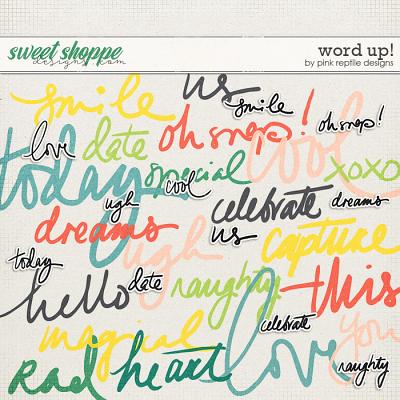 sweet shoppe
designs.com
word up!
by pink reptile designs
smile
us
smile
oh snap!
oh snap!
love
date
cool
today
special
cool
xoxo
ugh
celebrate
dreams
dreams
ugh
us
capture
today
hello
date
naughty
this
magical
love
celebrate
you
rad
heart
naughty